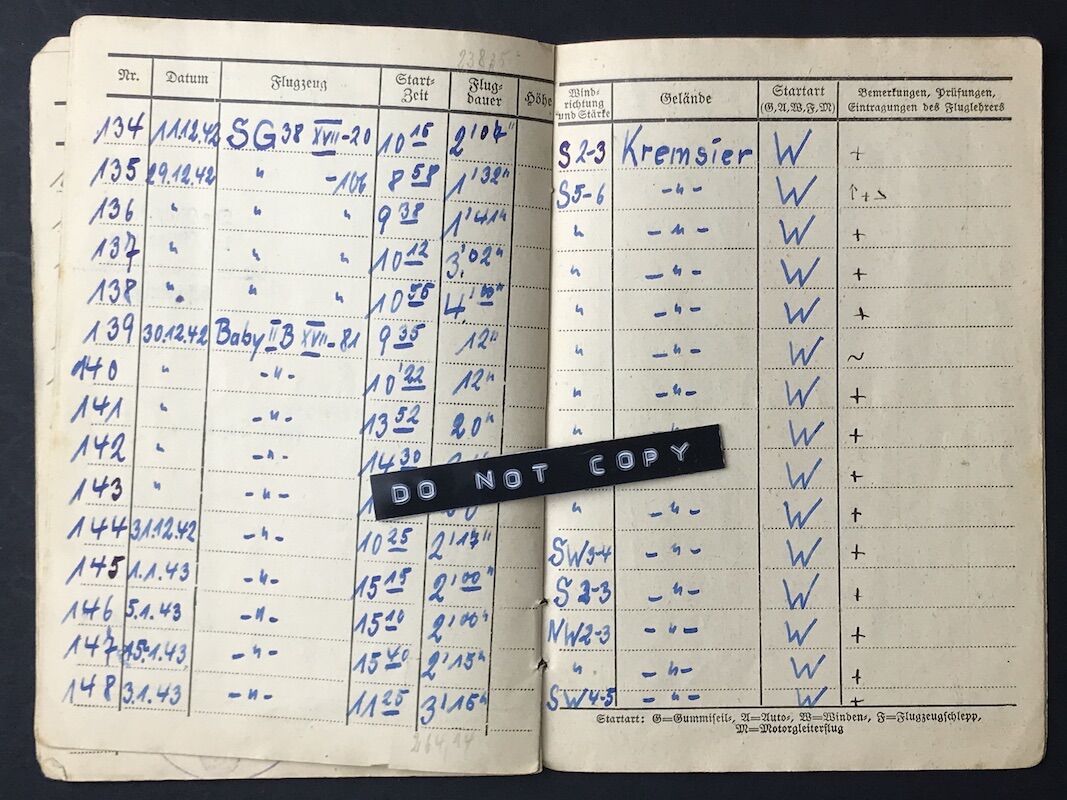 Nr. Datum Flugzeug Start-Zeit Flug-dauer Höhe Wind-richtung und Stärke Gelände Startart (G,A,W,F,M) Bemerkungen, Prüfungen, Eintragungen des Fluglehrers
134 11.12.42 SG 38 XVII-20 10 16 S 2-3 Kremsier W +
135 29.12.42 " -106 8 58 1'32" S5-6 -"- W
136 " " " 9 38 1'41" " -"- W +
137 " " " 10 12 3'02" " -"- W +
138 " " " 10 56 4'00" " -"- W +
139 30.12.42 Baby II B XVII-81 9 35 12" " -"- W ~
140 " -"- 10 22 12" " -"- W +
141 " -"- 13 52 20" " W +
142 " -"- 14 30 W +
143 " -"- " -"- W +
144 31.12.42 -"- 10 25 2'17" SW3-4 -"- W +
145 1.1.43 -"- 15 15 2'00" S 2-3 -"- W +
146 5.1.43 -"- 15 10 2'00" NW2-3 -"- W +
147 15.1.43 -"- 15 40 2'15" " -"- W +
148 3.1.43 -"- 11 25 3'16" SW4-5 -"- W +
DO NOT COPY
Startart: G=Gummiseil-, A=Auto-, W=Winden-, F=Flugzeugschlepp,
M=Motorgleiterflug